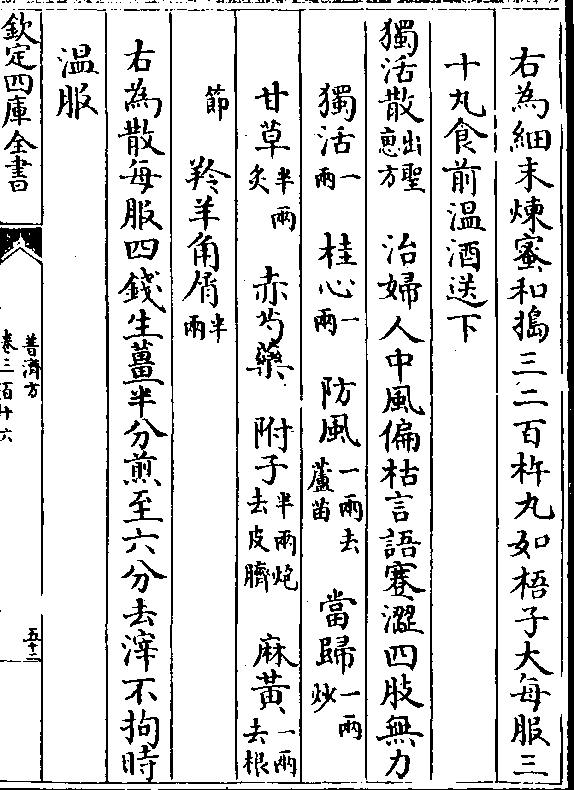 右為細末煉蜜和搗三二百杵丸如梧子大每服三
十丸食前溫酒送下
獨活散出聖惠方 治婦人中風偏枯言語蹇澀四肢無力
獨活一兩 桂心一兩 防風一兩去蘆苗 當歸一兩炒
甘草半兩炙 赤芍藥 附子半兩炮去皮臍 麻黃一兩去根
節 羚羊角屑半兩
右為散每服四錢生薑半分煎至六分去滓不拘時
溫服
欽定四庫全書
普濟方
卷三百十六
五十二